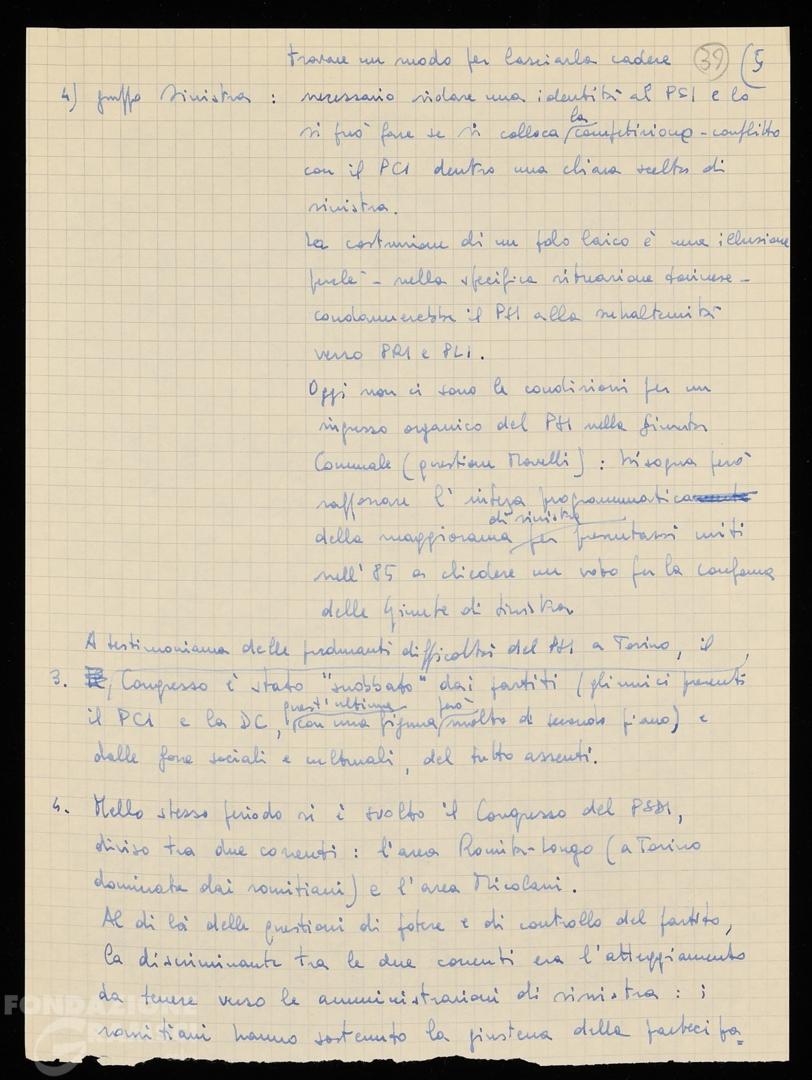 trovare un modo per lasciarla cadere 39 (5
4) gruppo sinistra : necessario ridare una identità al PSI e lo
la
si può fare se si colloca competizione - conflitto
con il PCI dentro una chiara scelta di
sinistra.
La costruzione di un polo laico è una illusione
perché - nella specifica situazione torinese -
condannerebbe il PSI alla subalternità
verso PRI e PLI.
Oggi non ci sono le condizioni per un
ingresso organico del PSI nella Giunta
Comunale (questione Novelli) : bisogna però
rafforzare l'intesa programmatica
di sinistra
della maggioranza per presentarsi uniti
nell'85 a chiedere un voto per la conferma
delle Giunte di sinistra
A testimonianza delle perduranti difficoltà del PSI a Torino, il
3. Congresso è stato "snobbato" dai partiti (gli unici presenti
quest'ultima però
il PCI e la DC, con una figura molto di secondo piano) e
dalle forze sociali e culturali, del tutto assenti.
4. Nello stesso periodo si è svolto il Congresso del PSDI,
diviso tra due correnti : l'area Romita-Longo (a Torino
dominata dai romitiani) e l'area Nicolazzi.
Al di là delle questioni di potere e di controllo del partito,
la discriminante tra le due correnti era l'atteggiamento
da tenere verso le amministrazioni di sinistra : i
romitiani hanno sostenuto la giustezza della partecipa=
FONDAZIONE